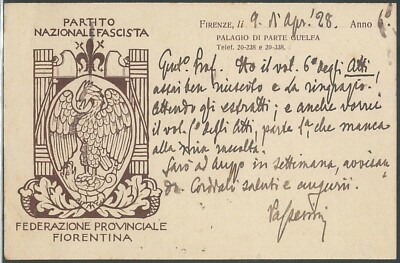 PARTITO
NAZIONALE FASCISTA
FEDERAZIONE PROVINCIALE
FIORENTINA
FIRENZE, li 9. di Apr. '28. Anno 6º
PALAGIO DI PARTE GUELFA
Telef. 20-238 e 20-338.
Prof. Ho il vol. 6º degli Atti
assai ben riuscito e La ringrazio.
Attendo gli estratti; e anche vorrei
il vol. degli Atti, parte 1ª, che manca
alla mia raccolta.
Sarò ad in settimana, avvisan
do. Cordiali saluti e augurii.